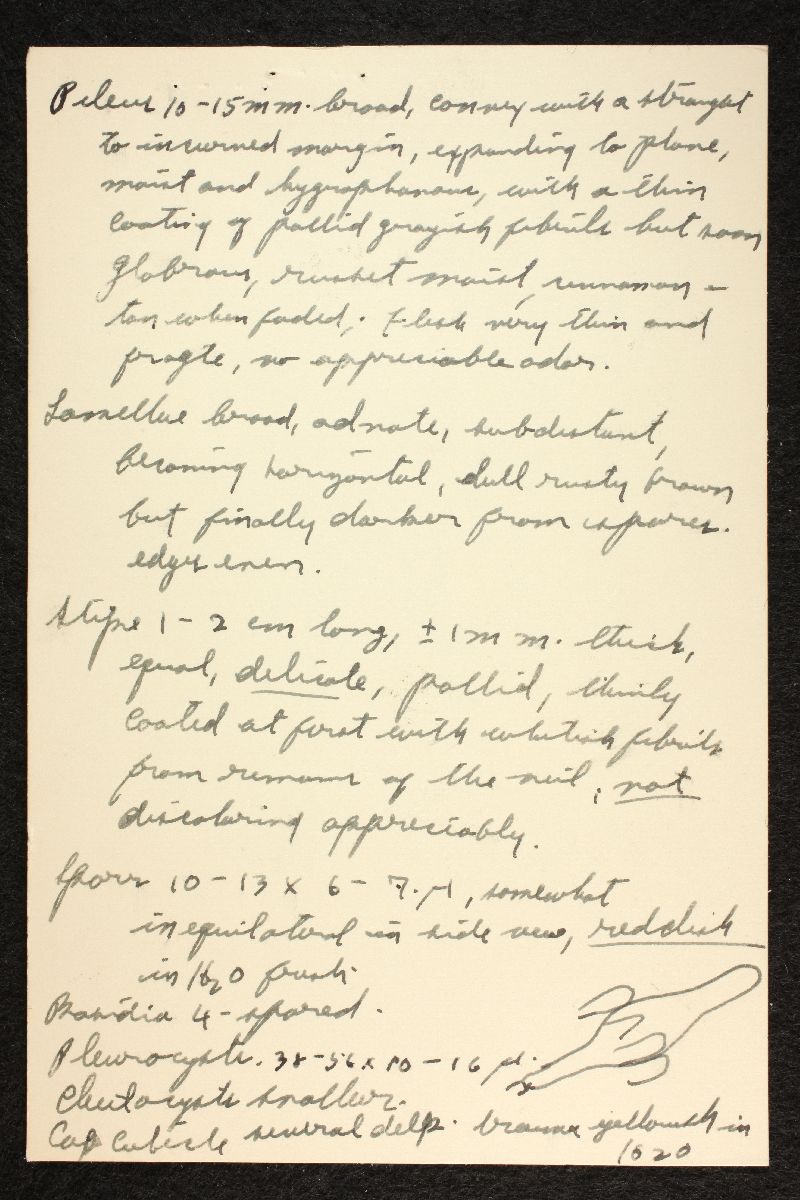 Pileus 10-15 mm. broad, convex with a straight
to incurved margin, expanding to plane,
moist and hygrophanous, with a thin
coating of pallid grayish fibrils but soon
glabrous, russet moist, cinnamon-
tan when faded; flesh very thin and
fragile, no appreciable odor.
Lamellae broad, adnate, subdistant,
becoming horizontal, dull rusty brown
but finally darker from spores.
edges even.
Stipe 1-2 cm long, ± 1 mm. thick,
equal, delicate, pallid, thinly
coated at first with whitish fibrils
from remains of the veil, not
discoloring appreciably.
Spores 10-13 x 6-7. μ, somewhat
inequilateral in side view, reddish
in H2O fresh.
Basidia 4-spored.
Pleurocysts. 38-56 x 10-16 μ.
Cheilocysts smaller.
Cap cuticle several deep. yellowish in
H2O